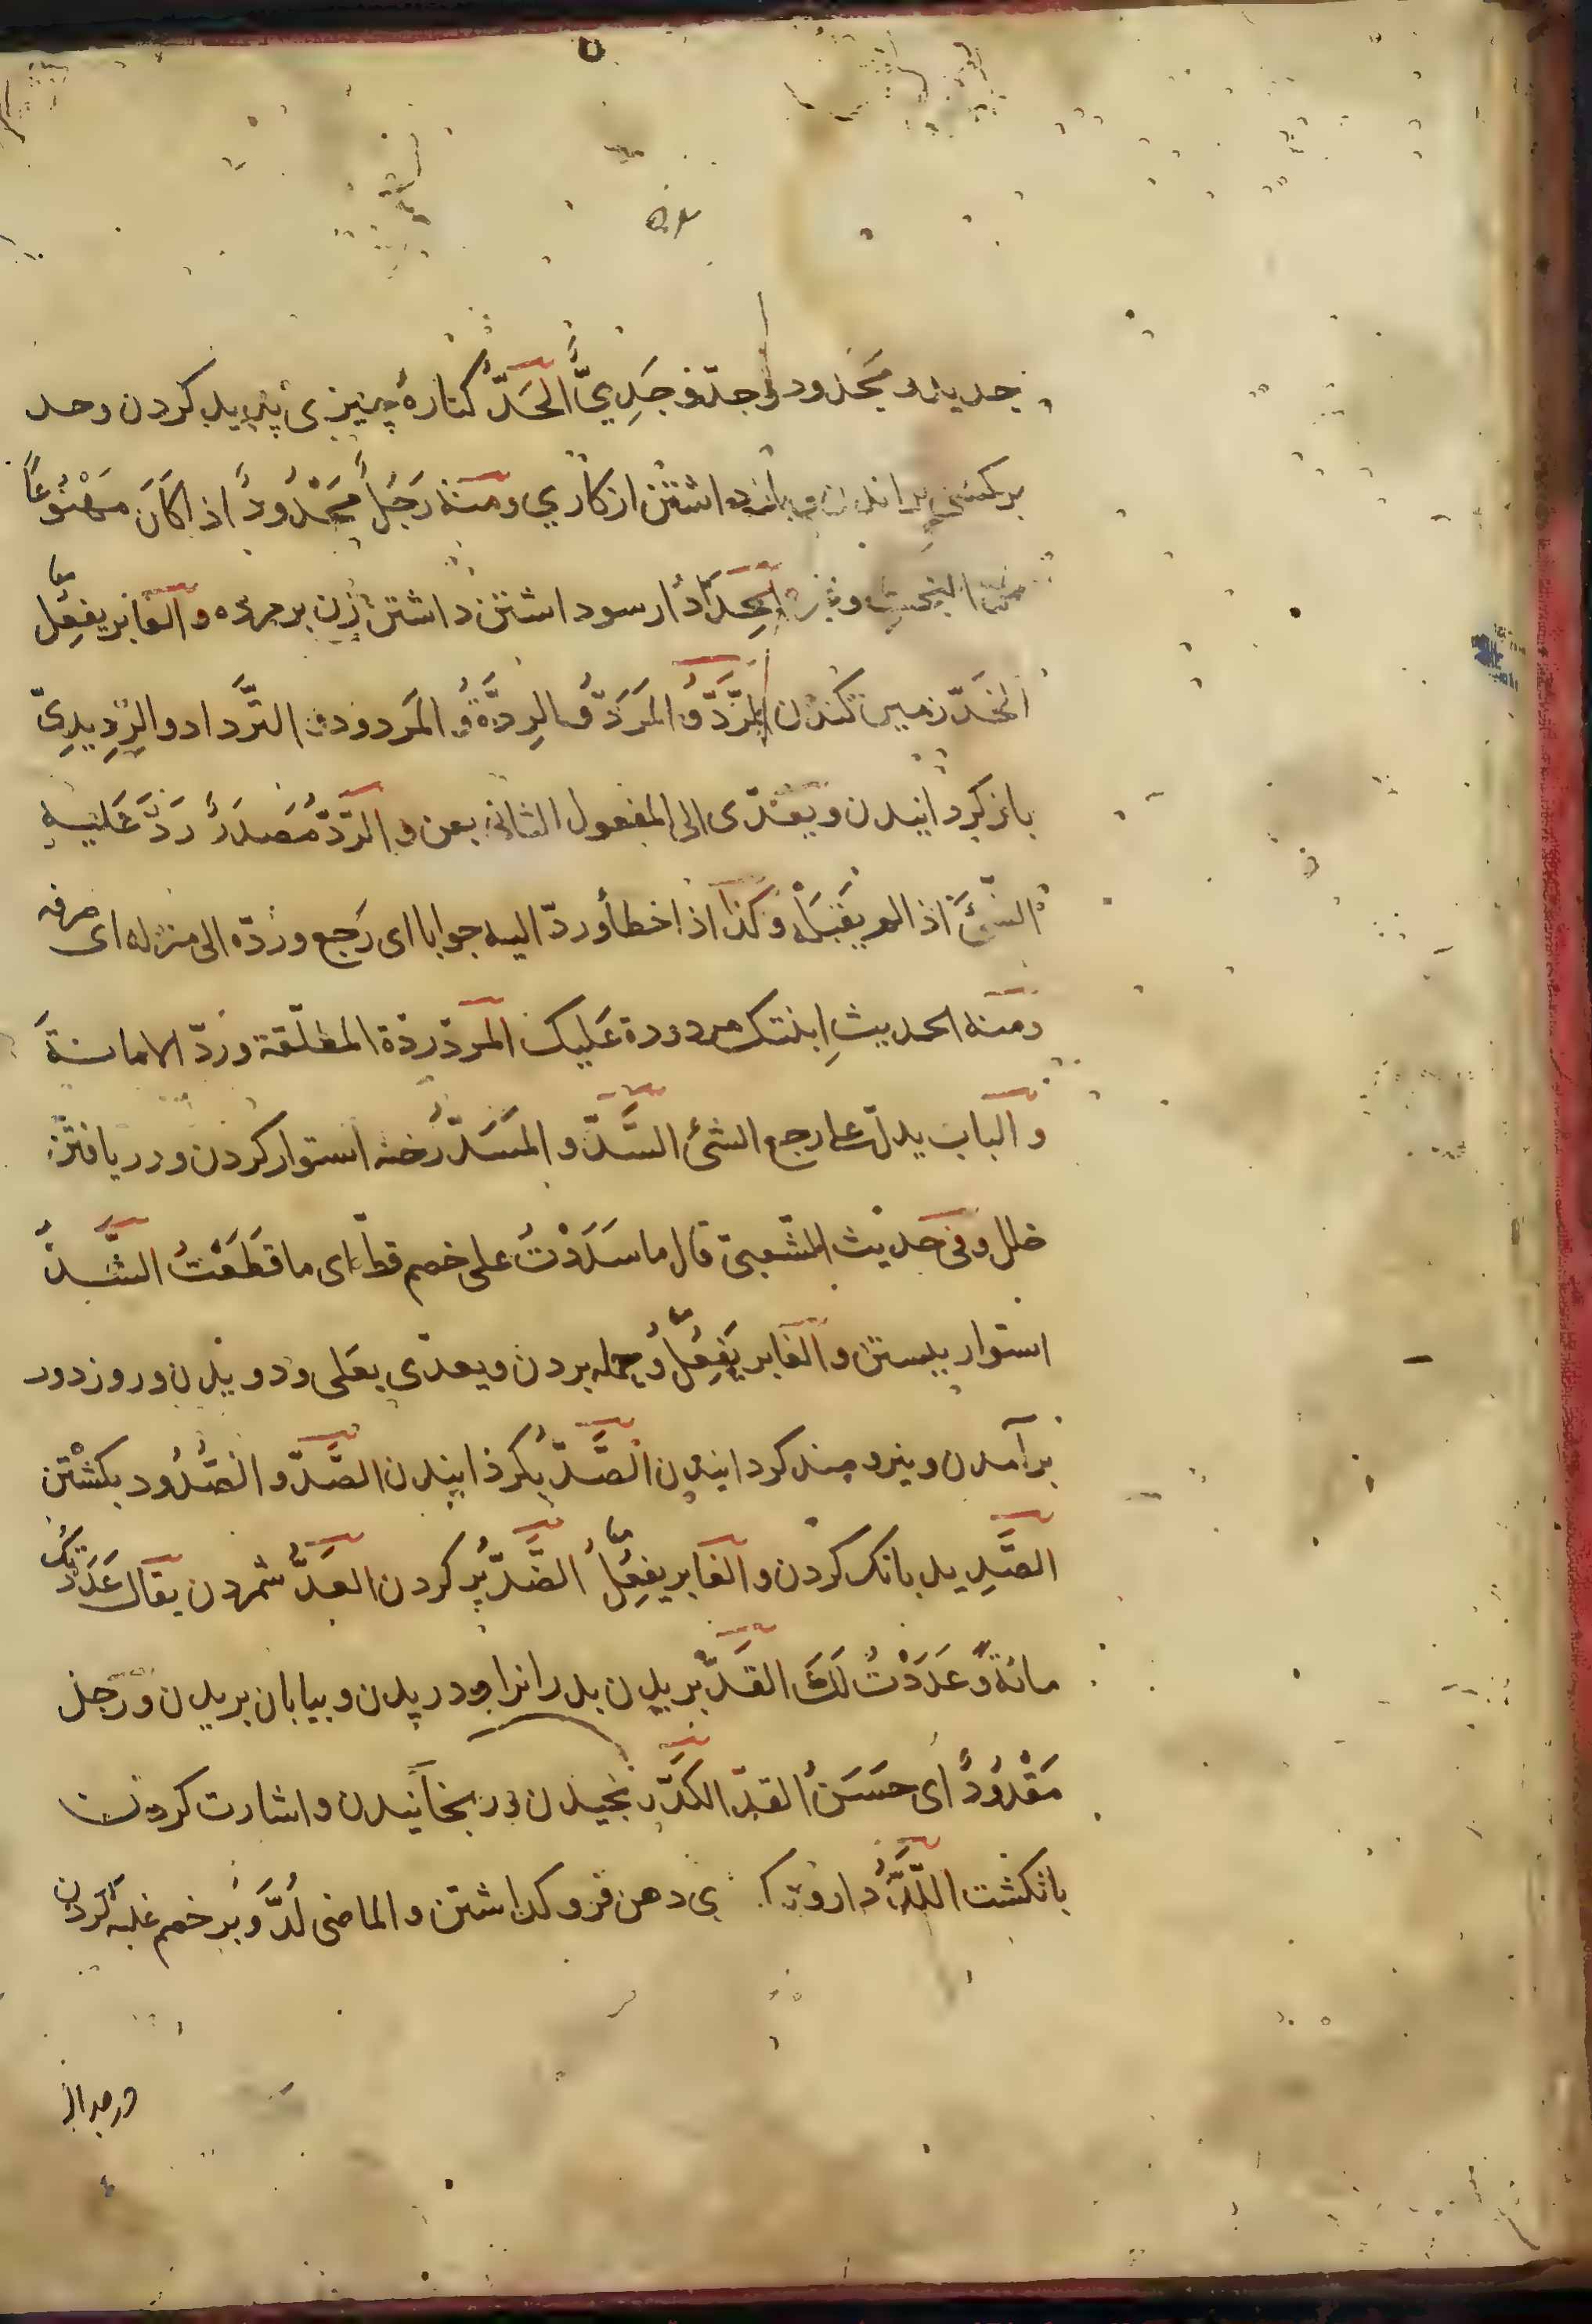 جديد و مجدود و جدّ و جَدِيٌّ الحَدّ كنارهٔ چيزى پديد كردن وحد
بر كسى براندن و بازداشتن از كاري ومنه رَجُلٌ مَحْدُودٌ اذا كَانَ مَمْنُوعًا
البخت و الحِدَادُ سود داشتن زن بر مرده و الغابر يفعِل معًا
الخَدّ زمين كندن الرَّدُّ و المَرَدُّ و الرِدَّةُ و المَردود و التَّرداد و الرِّدِّيدِيّ
باز گردانيدن و يعدّى الى المفعول الثانى بعن و الرَّدُّ مَصدَرُ رَدَّ عَلَيهِ
الشّئَ اذا لم يَقبَلْهُ وكذا اذا خطأه وردّ اليه جوابا اى رَجع وردّه الى منزله اى صرفه
ومنه الحديثِ ابنتك مردودة عَلَيك المردودة المطلّقة وردّ الامانةَ
و الباب يدلّ على رجع الشئ السَّدّ و المَسَدّ رَخنه استوار كردن و دريافتن
خلل وفى حديث الشعبىّ قال ما سَدَدْتُ على خصم قطّ اى ما قَطَعْتُ الشَّدُّ
استوار ببستن و الغابر يَفعِلُ معًا و حمله بردن ويعدّى بعَلى و دويدن و روز دور
برآمدن و نيرومند كردانيدن الصَّدّ بگردانيدن الصَّدّ و الصُّدُود بگشتن
الصَّدِيد بانك كردن و الغابر يفعِلُ معًا الضَّدّ پُر كردن العَدُّ شمردن يقال عَدَدتُك
مائةً و عَدَدْتُ لَكَ القَدّ بريدن بدرازا و دريدن و بيابان بريدن و رَجل
مَقْدُودٌ اى حَسَنُ القدّ الكَدّ رنجيدن و رنجانيدن و اشارت كردن
بانكشت اللَّدُّ دارو دهن فرو كذاشتن و الماضى لُدَّ و بر خصم غلبه كردن